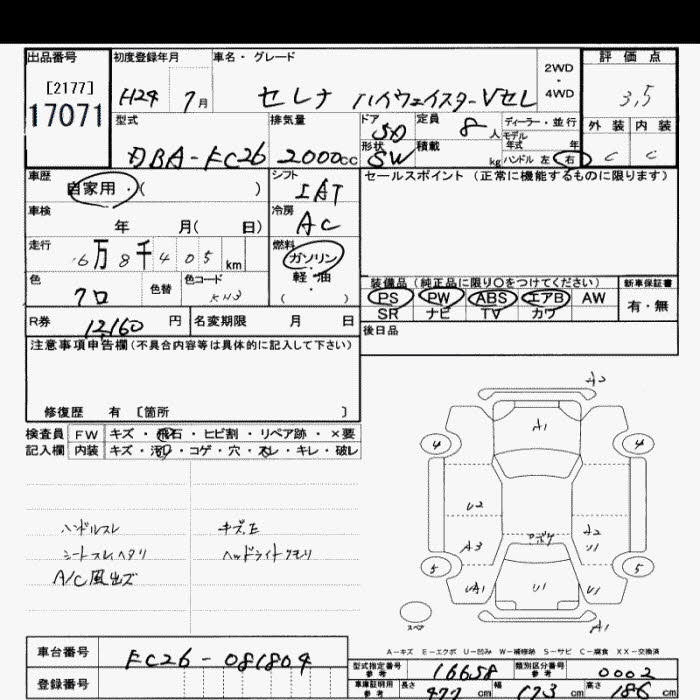 出品番号 初度登録年月 車名・グレード 2WD・4WD 評価点
[2177] 17071 H24 7月 セレナ ハイウェイスターVセレ 3,5
型式 排気量 ドア 定員 ディーラー・並行 外装 内装
DBA-FC26 2000cc 5D 8人 モデル年式 年 C C
形状 SW 積載 kg ハンドル 左 右
車歴 自家用・( ) シフト IAT セールスポイント (正常に機能するものに限ります)
車検 年 月( 日) 冷房 AC
走行 6万8千405km 燃料 ガソリン
軽・油
( )
色 クロ 色替 色コード KH3
装備品 (純正品に限り〇をつけてください) 新車保証書
PS PW ABS エアB AW 有・無
SR ナビ TV カワ
R券 12,160円 名変期限 月 日 後日品
注意事項申告欄(不具合内容等は具体的に記入して下さい)
修復歴 有 [箇所 ]
検査員 FW キズ・飛石・ヒビ割・リペア跡・×要
記入欄 内装 キズ・汚れ・コゲ・穴・スレ・キレ・破レ
ハンドルスレ キズ、E
シートスレヘタリ ヘッドライトクモリ
A/C風出ズ
A2
A1
4 4
U2 アポケ A2
A3 U1
5 5
UA1 U1 U1
スペア A1
A-キズ E-エクボ U-凹み W-補修跡 S-サビ C-腐食 XX-交換済
車台番号 FC26-081804
登録番号
型式指定番号 参考 16658 類別区分番号 参考 0002
車庫証明用 参考 長さ 477cm 幅 173cm 高さ 186cm